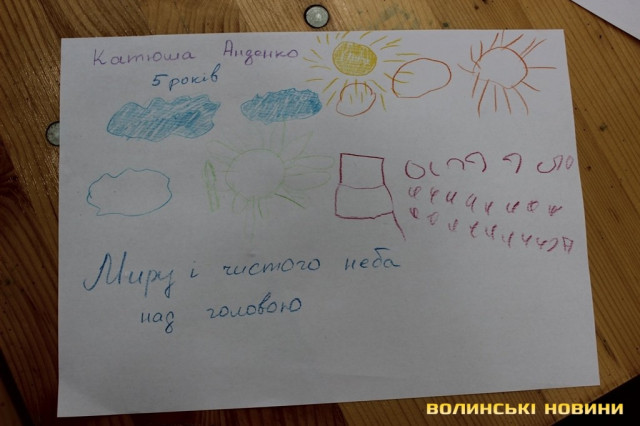 Катюша Анданко
5 років
Миру і чистого неба
над головою
ВОЛИНСЬКІ НОВИНИ